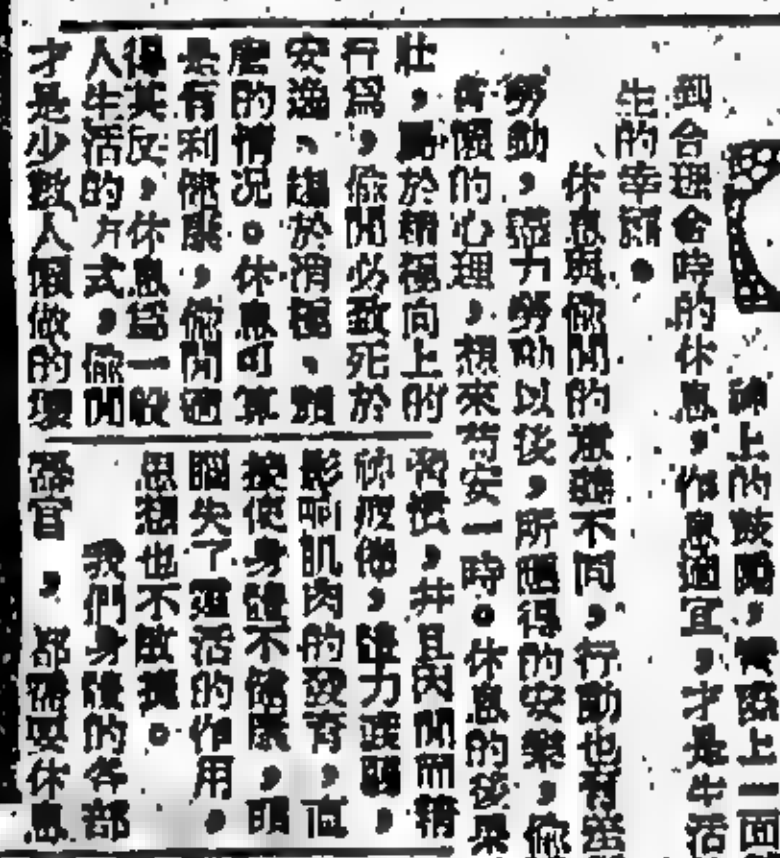 上的鼓，上一面
到合理合時的休息，作息適宜，才是生活
生的幸福。
休息與偷閒的意義不同，行動也有
勞動，盡力勞動以後，所獲得的安樂，偷
懶的心理，想來苟安一時。休息的後果
壯，屬於積極向上的
行為，偷閒必致死於
安逸、趨於消極、頹
的情況。休息可算
是有利健康，偷閒適
得其反，休息為一般
人生活的方式，偷閒
才是少數人懶做的壞
習慣，并且因閒而精
神疲倦，體力衰弱，
影响肌肉的發育，直
接使身體不健康，明
腦失了靈活的作用，
思想也不敏
我們身體的各部
器官，都需要休息